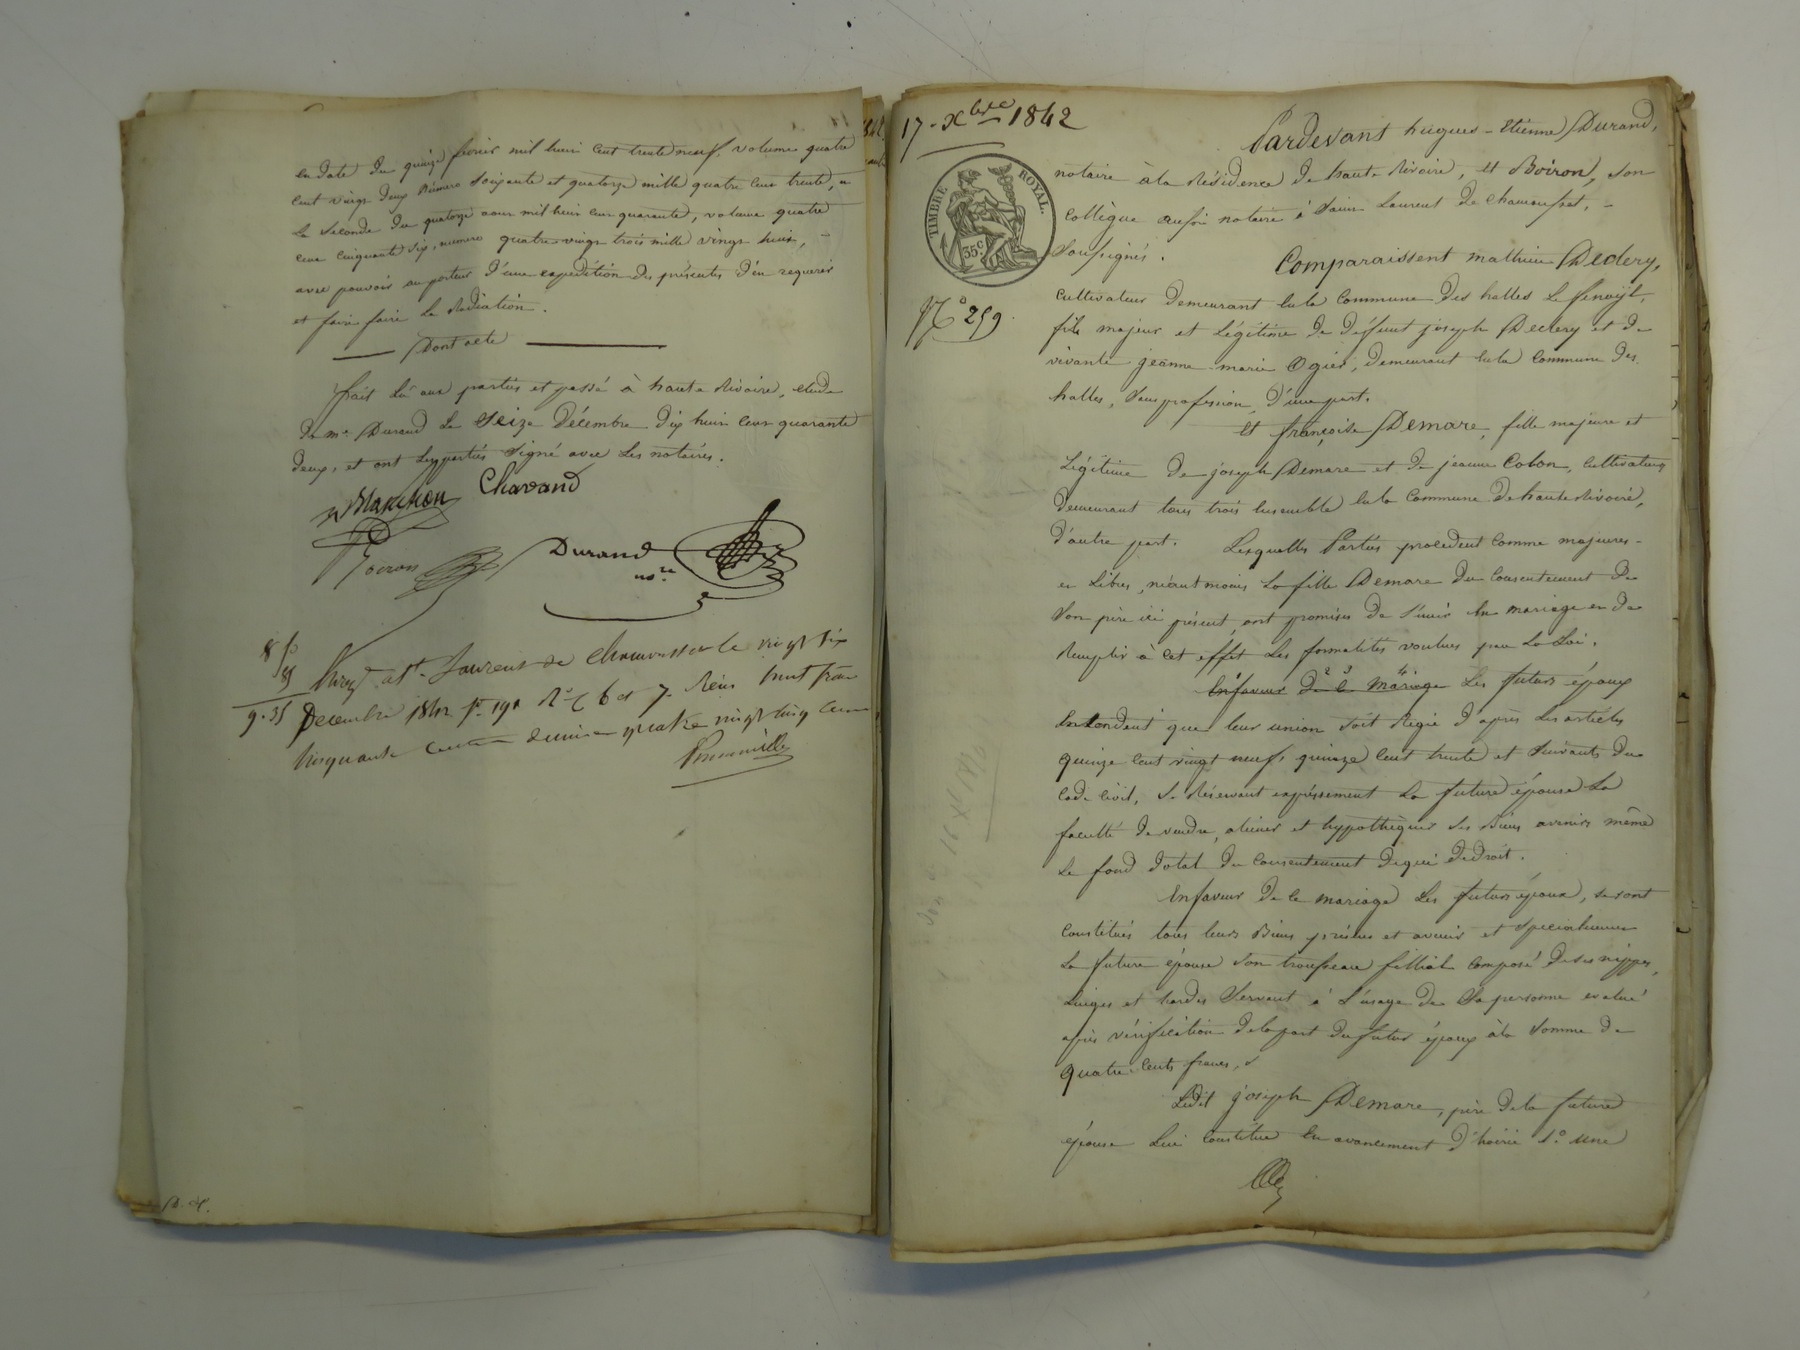 en date du quinze février mil huit cent trente neuf, volume quatre
cent vingt deux numéro soixante et quatorze mille quatre cent trente, et
la seconde du quatorze aout mil huit cent quarante, volume quatre
cent cinquante six, numéro quatre vingt trois mille vingt huit, -
avec pouvoir au porteur d'une expédition des présentes d'en requerir
et faire faire la Radiation.
Dont acte
fait lû aux parties et passé à haute Rivoire, étude
de me Durand le Seize Décembre dix huit cent quarante
deux, et ont les parties signé avec les notaires.
Chavand
Boiron
Durand
nore
8 fo
85
9.35
Enregt a St Laurent de Chamousset le vingt six
Decembre 1842 fo 191 Ro C 6 et 7. Reçu huit fran
cinquante cent decime quatre vingt cinq cent
17 - Xbre 1842
TIMBRE ROYAL.
35c
No 259.
Pardevant hugues - Etienne Durand,
notaire à la Résidence de haute Rivoire, et Boiron, son
Collègue aussi notaire à Saint Laurent de Chamousset, -
Soussignés.
Comparaissent mathieu Decery,
cultivateur demeurant en la commune des halles Le fenoÿl,
fils majeur et Légitime de deffunt joseph Decery et de
vivante jeanne marie Ogier, demeurant en la commune des
halles, sans profession, d'une part.
Et françoise Demare, fille majeure et
Légitime de joseph Demare et de jeanne Colon, cultivateurs
demeurant tous trois ensemble en la commune de haute Rivoire,
d'autre part. Lesquelles Parties procedent comme majeures -
et Libres, néantmoins la fille Demare du consentement de
son père ici présent, ont promises de s'unir en mariage et de
remplir à cet effet les formalités voulues par la Loi.
En faveur de ce mariage Les futurs époux
Entendent que leur union soit Régie d'après les articles
quinze cent vingt neuf, quinze cent trente et suivants du
Code civil, se Réservant expréssement la future épouse la
faculté de vendre, aliener et hypothèquer ses Biens avenirs même
Le fond dotal du consentement de qui de droit.
En faveur de ce mariage Les futurs époux, se sont
constitués tous leurs Biens présens et avenir et spécialement
la future épouse son trousseau filial composé de ses nippes,
Linges et hardes servant à l'usage de sa personne évalué
après vérification de la part du futur époux à la somme de
quatre cents francs,
Ledit joseph Demare, père de la future
épouse lui constitue en avancement d'hoirie 1.o une